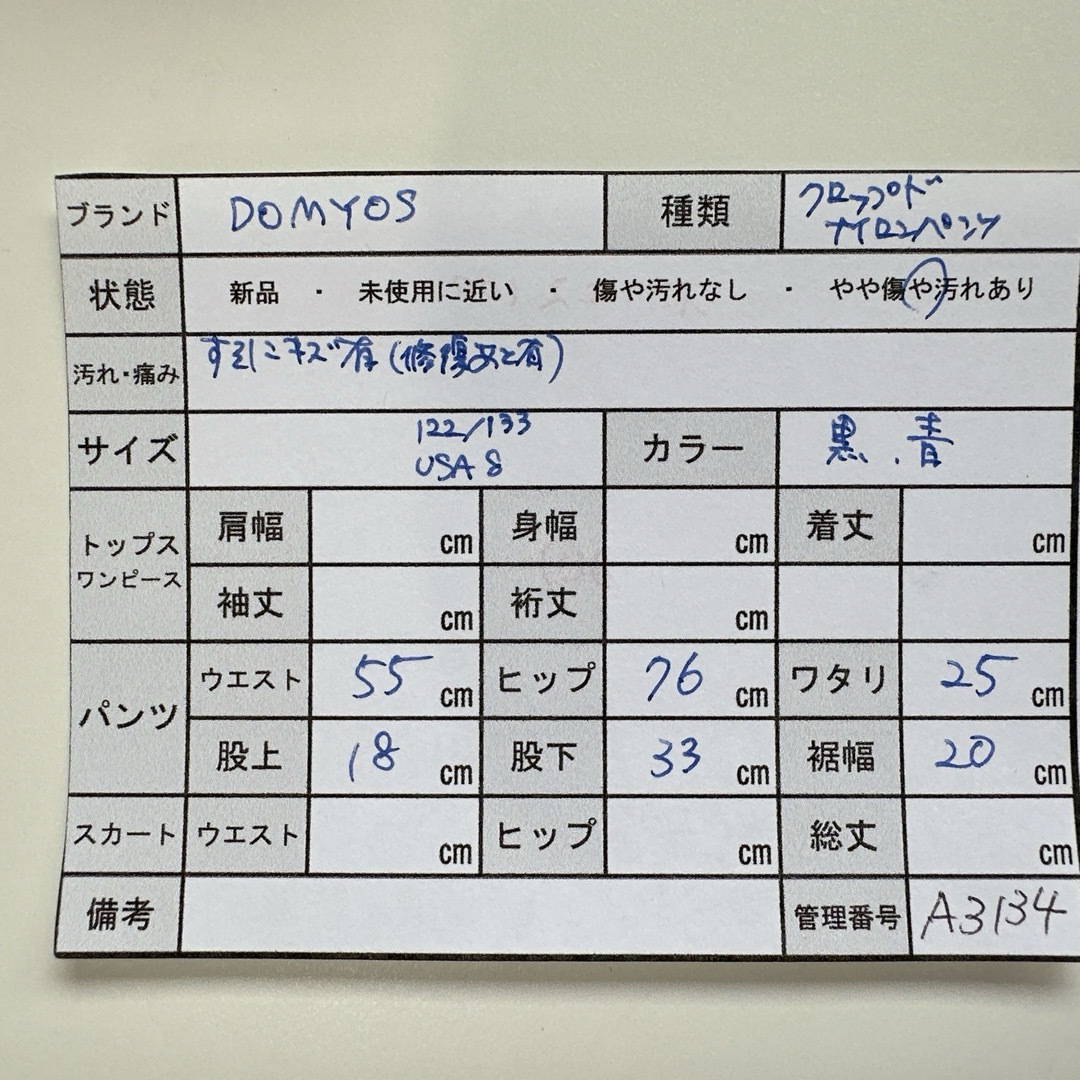 ブランド DOMYOS 種類 クロップド
ナイロンパンツ
状態 新品 ・ 未使用に近い ・ 傷や汚れなし ・ やや傷や汚れあり
汚れ・痛み キズ有(修復あと有)
サイズ 122/133 カラー 黒、青
USA 8
トップス
ワンピース
肩幅 cm 身幅 cm 着丈 cm
袖丈 cm 裄丈 cm
パンツ ウエスト 55 cm ヒップ 76 cm ワタリ 25 cm
股上 18 cm 股下 33 cm 裾幅 20 cm
スカート ウエスト cm ヒップ cm 総丈 cm
備考 管理番号 A3134